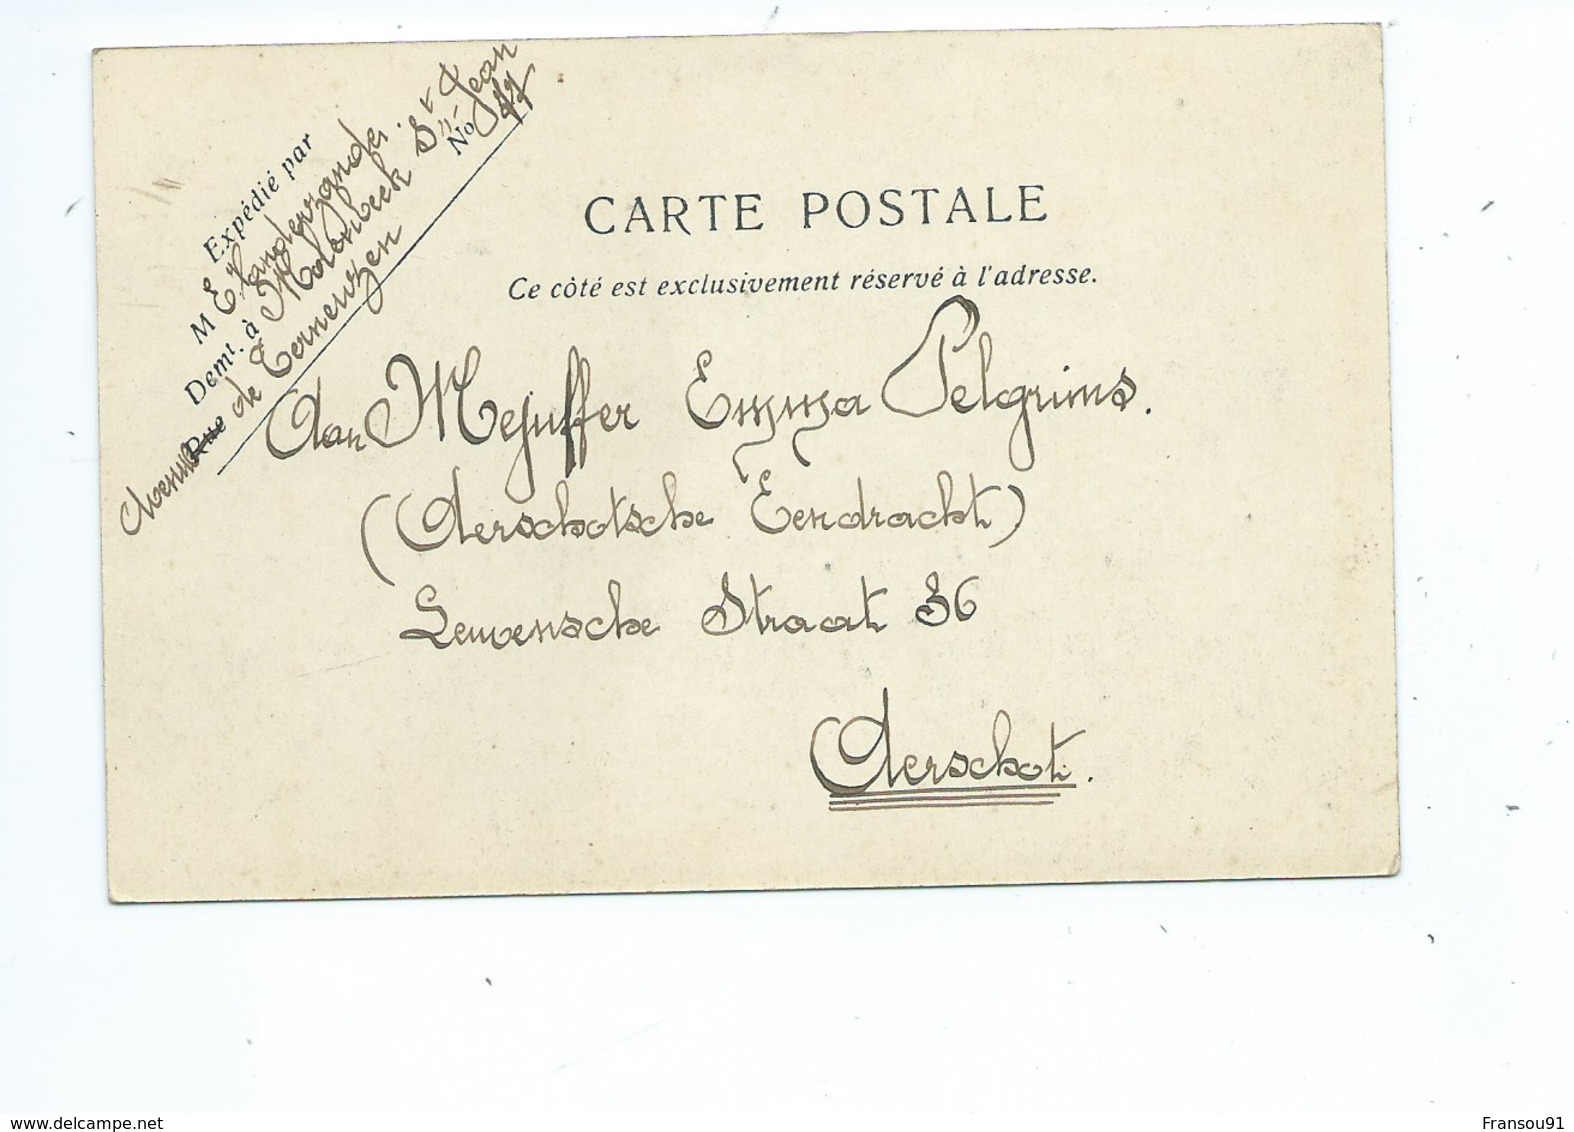 Expédié par
M E Vanderzanden.
Demt. à Molenbeek St Jean
Avenue Rue de Terneuzen No 37
CARTE POSTALE
Ce côté est exclusivement réservé à l'adresse.
Aan Mejuffer Emma Pelgrims.
(Aerschotsche Eendracht)
Leuvensche Straat 36
Aerschot.
www.delcampe.net
Fransou91